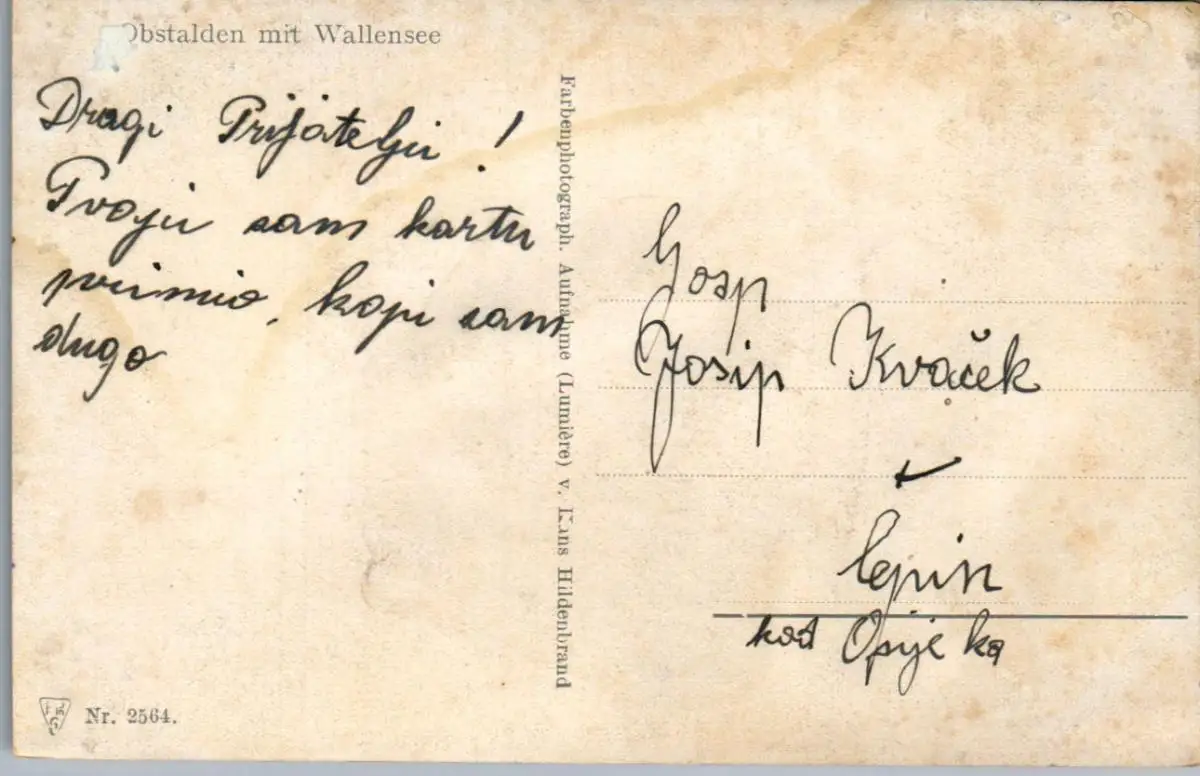 Obstalden mit Wallensee
Dragi Prijatelju !
Tvoju sam kartu
primio, koju sam
dugo
Farbenphotograph. Aufnahme (Lumière) v. Hans Hildenbrand
Gosp
Josip Kvaček
Čepin
kod Osijeka
Nr. 2564.